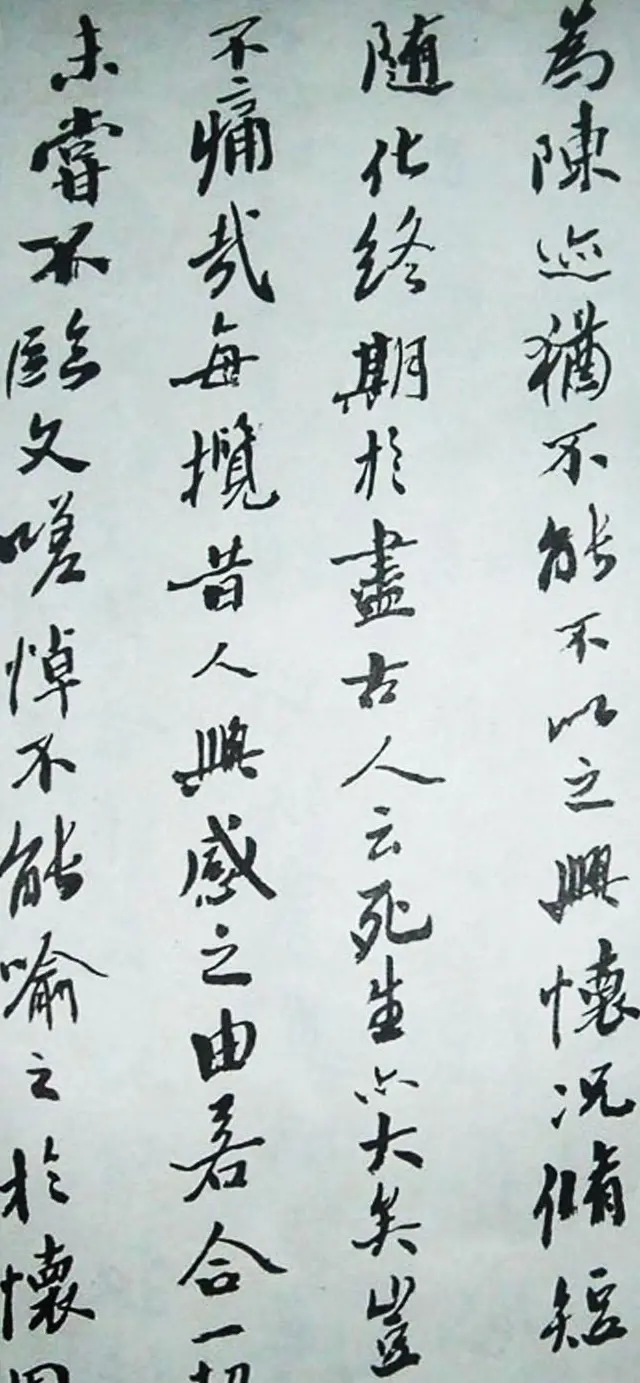 為陳迹猶不能不以之興懷況脩短
随化終期於盡古人云死生亦大矣豈
不痛哉每攬昔人興感之由若合一契
未嘗不臨文嗟悼不能喻之於懷固